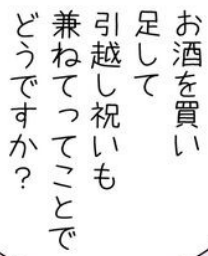 お酒を買い
足して
引越し祝いも
兼ねてってことで
どうですか？